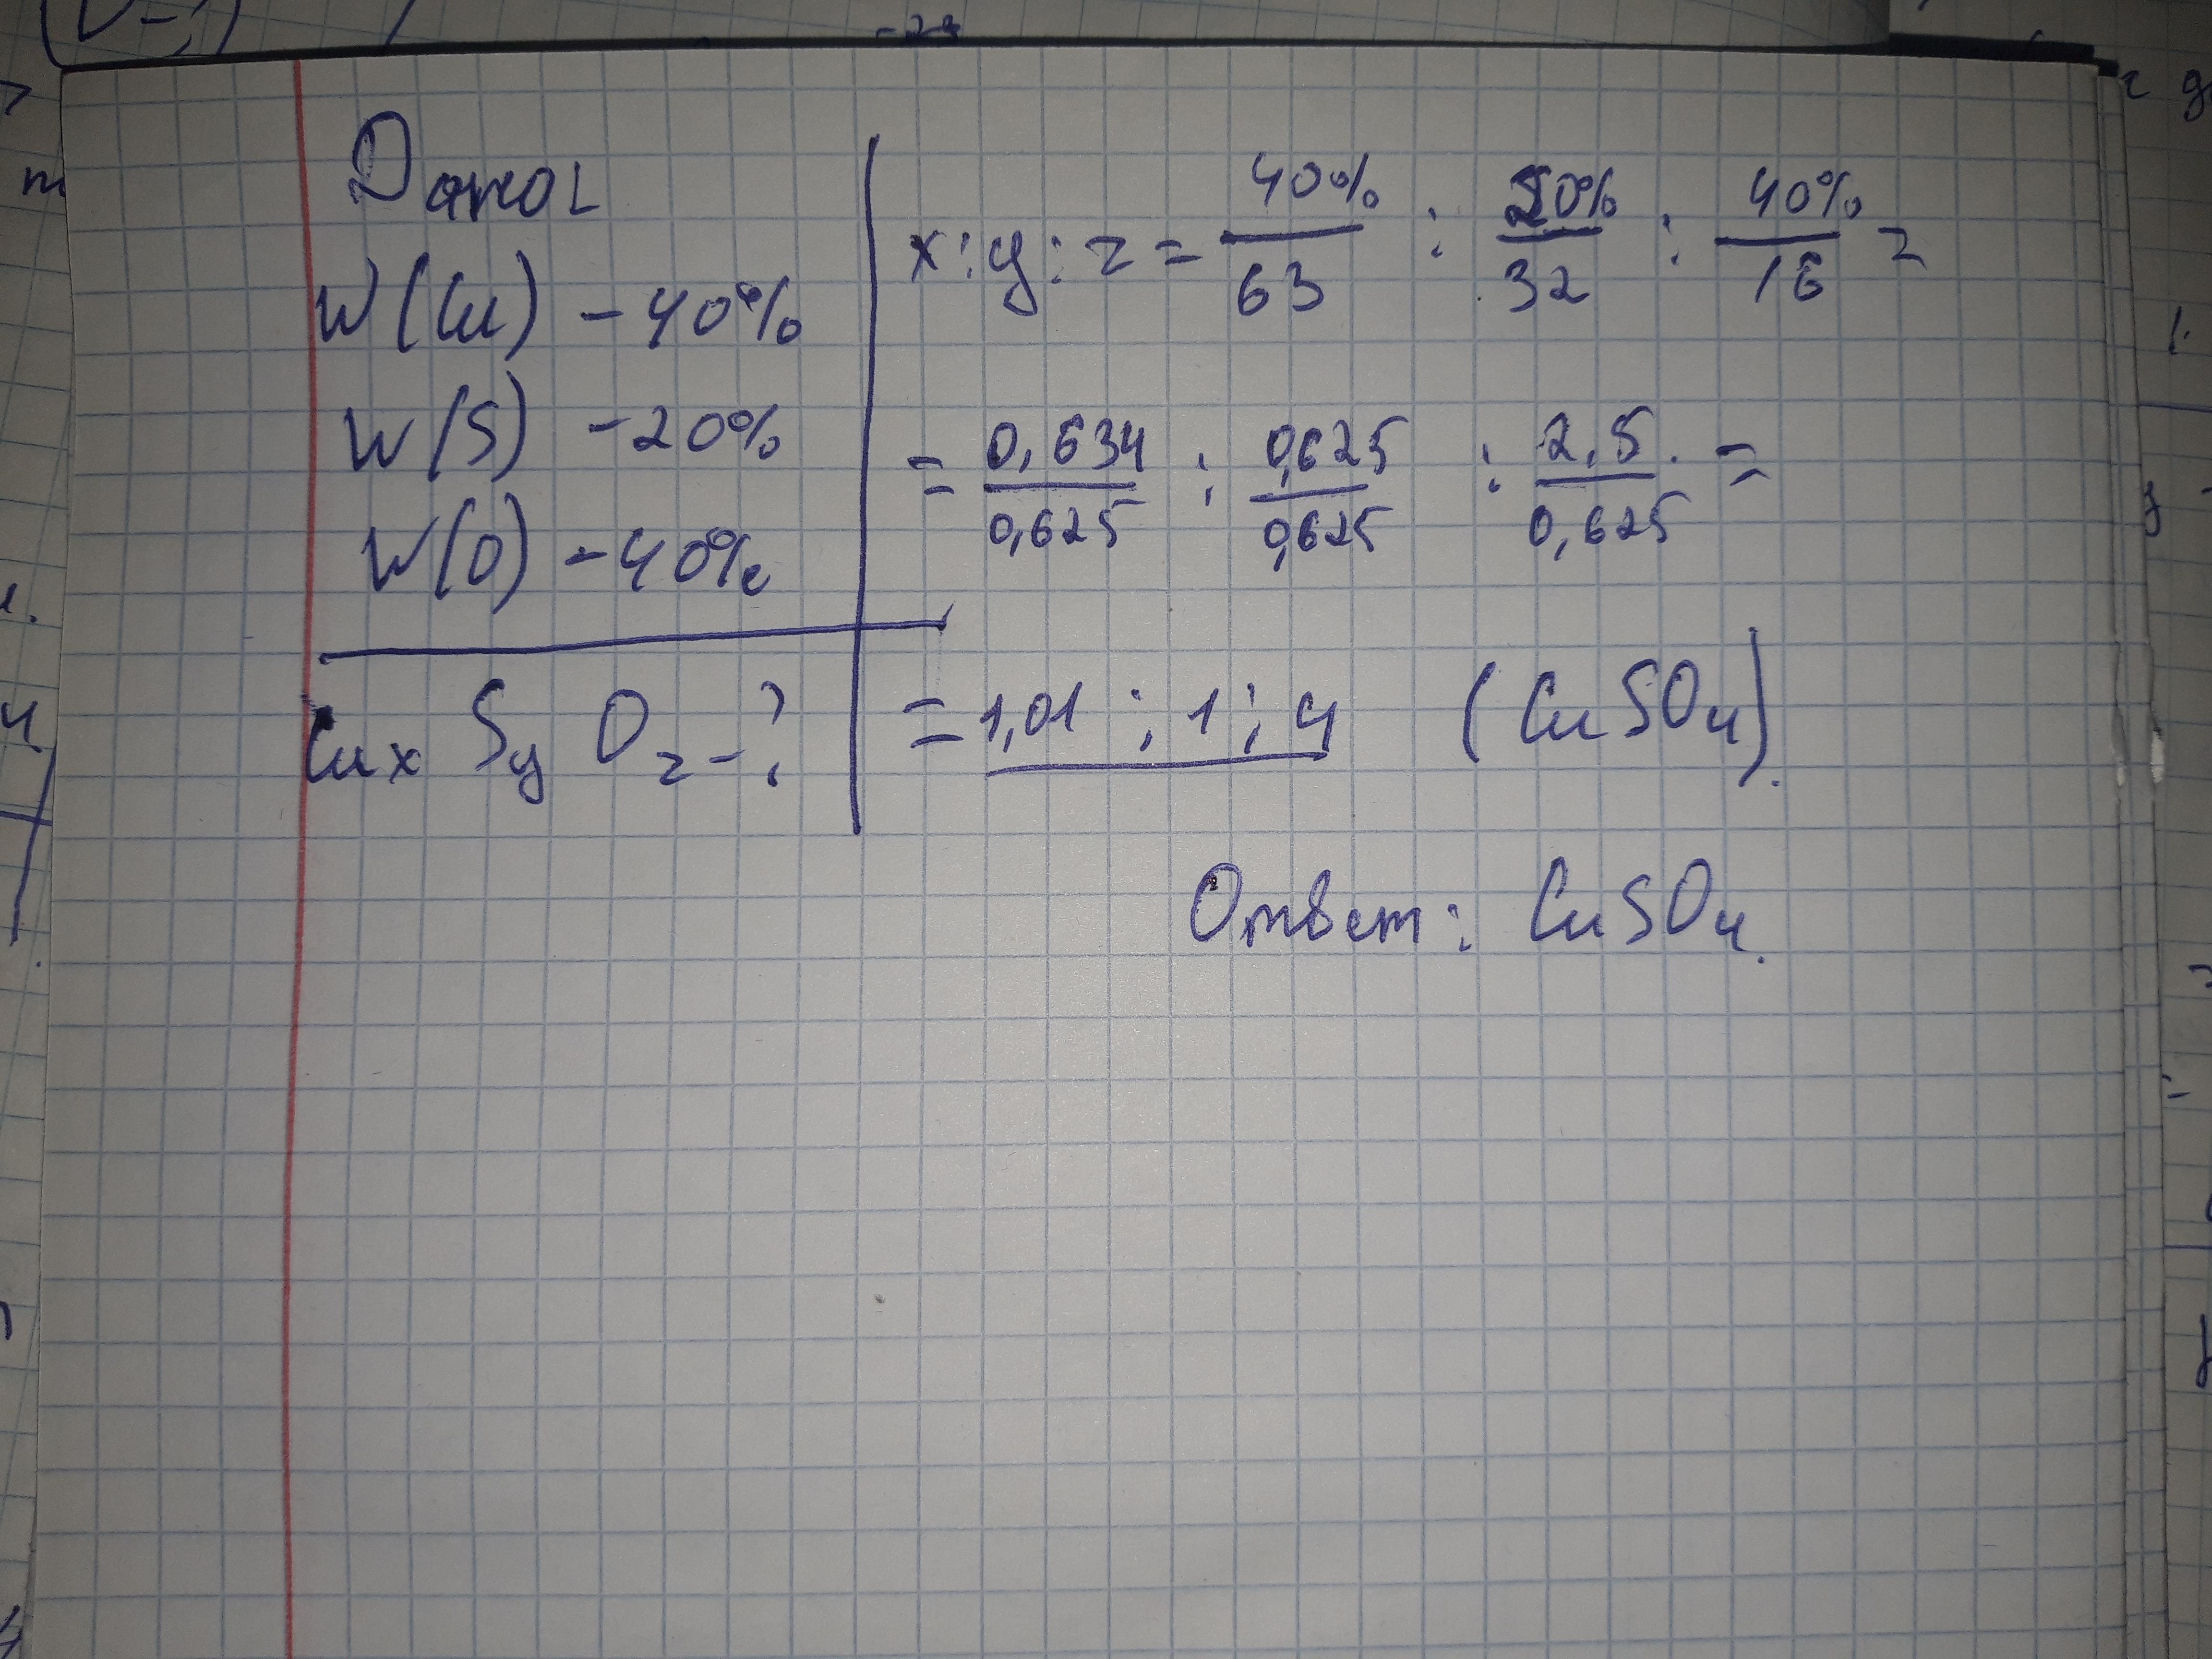 Дано:
W(Cu) - 40%
W(S) - 20%
W(O) - 40%
CuxSyOz - ?
x : y : z = 40%/63 : 20%/32 : 40%/16 =
= 0,634/0,625 : 0,625/0,625 : 2,5/0,625 =
= 1,01 : 1 : 4 (CuSO4).
Ответ: CuSO4.